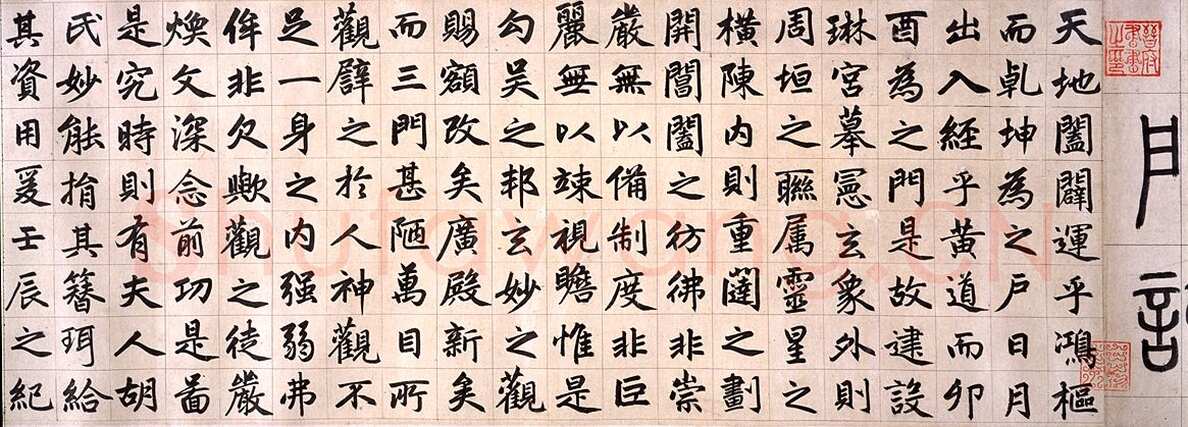 天地闔闢運乎鴻樞
而乹坤為之戶日月
出入經乎黃道而卯
酉為之門是故建設
琳宮摹憲玄象外則
周垣之聯属靈星之
橫陳內則重闥之劃
開閶闔之彷彿非崇
嚴無以備制度非巨
麗無以竦視瞻惟是
勾吴之邦玄妙之觀
賜額改矣廣殿新矣
而三門甚陋萬目所
觀譬之於人神觀不
足一身之內强弱弗
侔非欠歟觀之徒嚴
煥文深念前功是啚
是究時則有夫人胡
氏妙能捐其簮珥給
其資用爰壬辰之紀
晉府書畫之印
Shufawang.CN